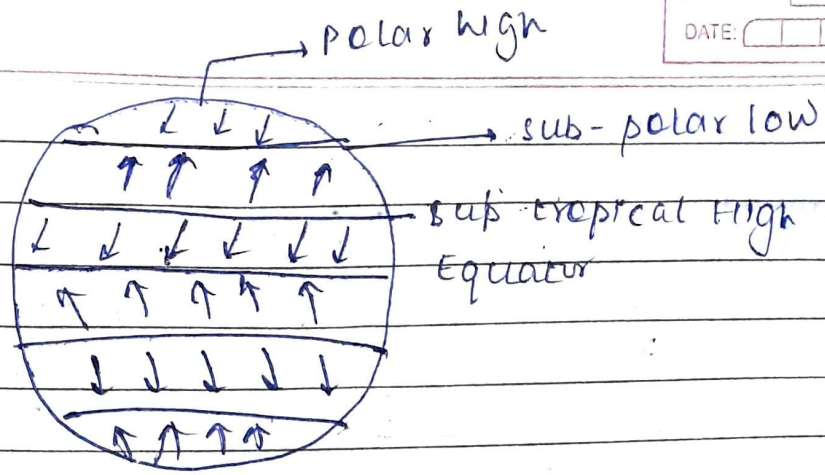 polar high
DATE:
sub-polar low
sub tropical High
Equator